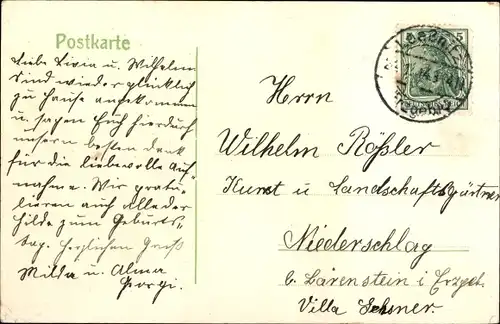 Postkarte
Liebe Livia u. Wilhelm
Sind wieder glücklich
zu Hause angekommen
u. sagen Euch hierdurch
unsern besten Dank
für die liebevolle Auf-
nahme. Wir gratu-
lieren auch alle der
Hilde zum Geburts-
tag. Herzlichen Gruß
Milda u. Alma
Georgi.
5
Herrn
Wilhelm Rößler
Kunst u Landschaftsgärtner
Niederschlag
b. Bärenstein i Erzgeb.
Villa